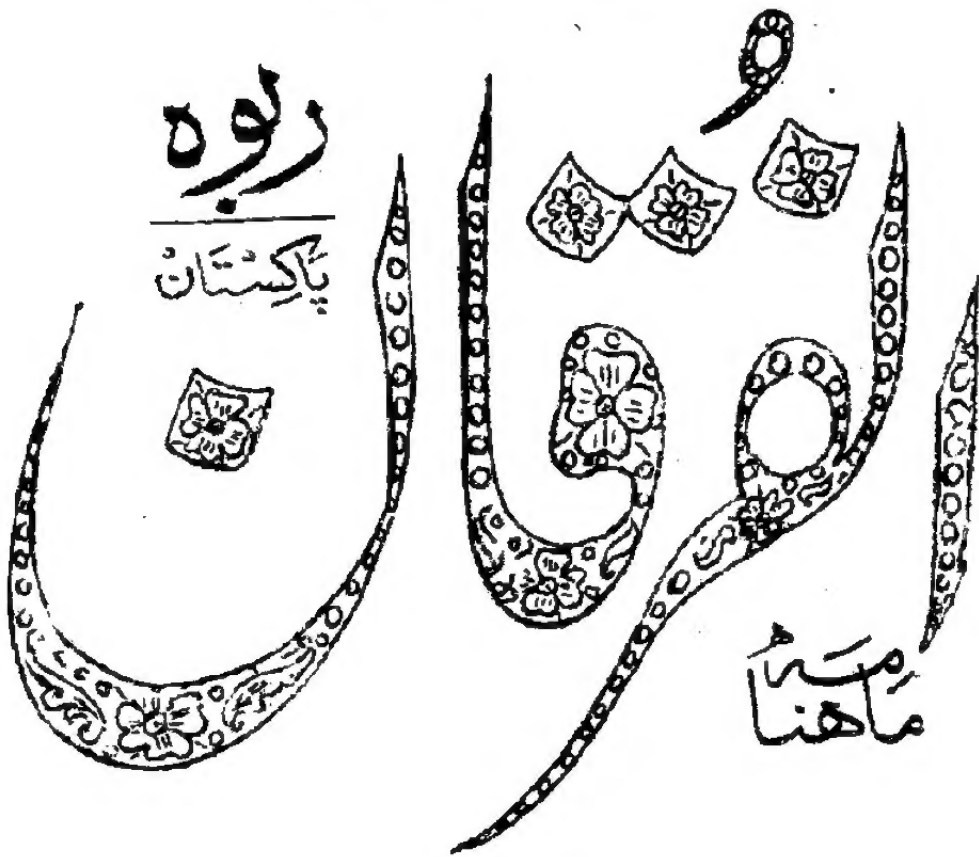 ماهنامہ
الفُرقان
ربوہ
پاکِستان